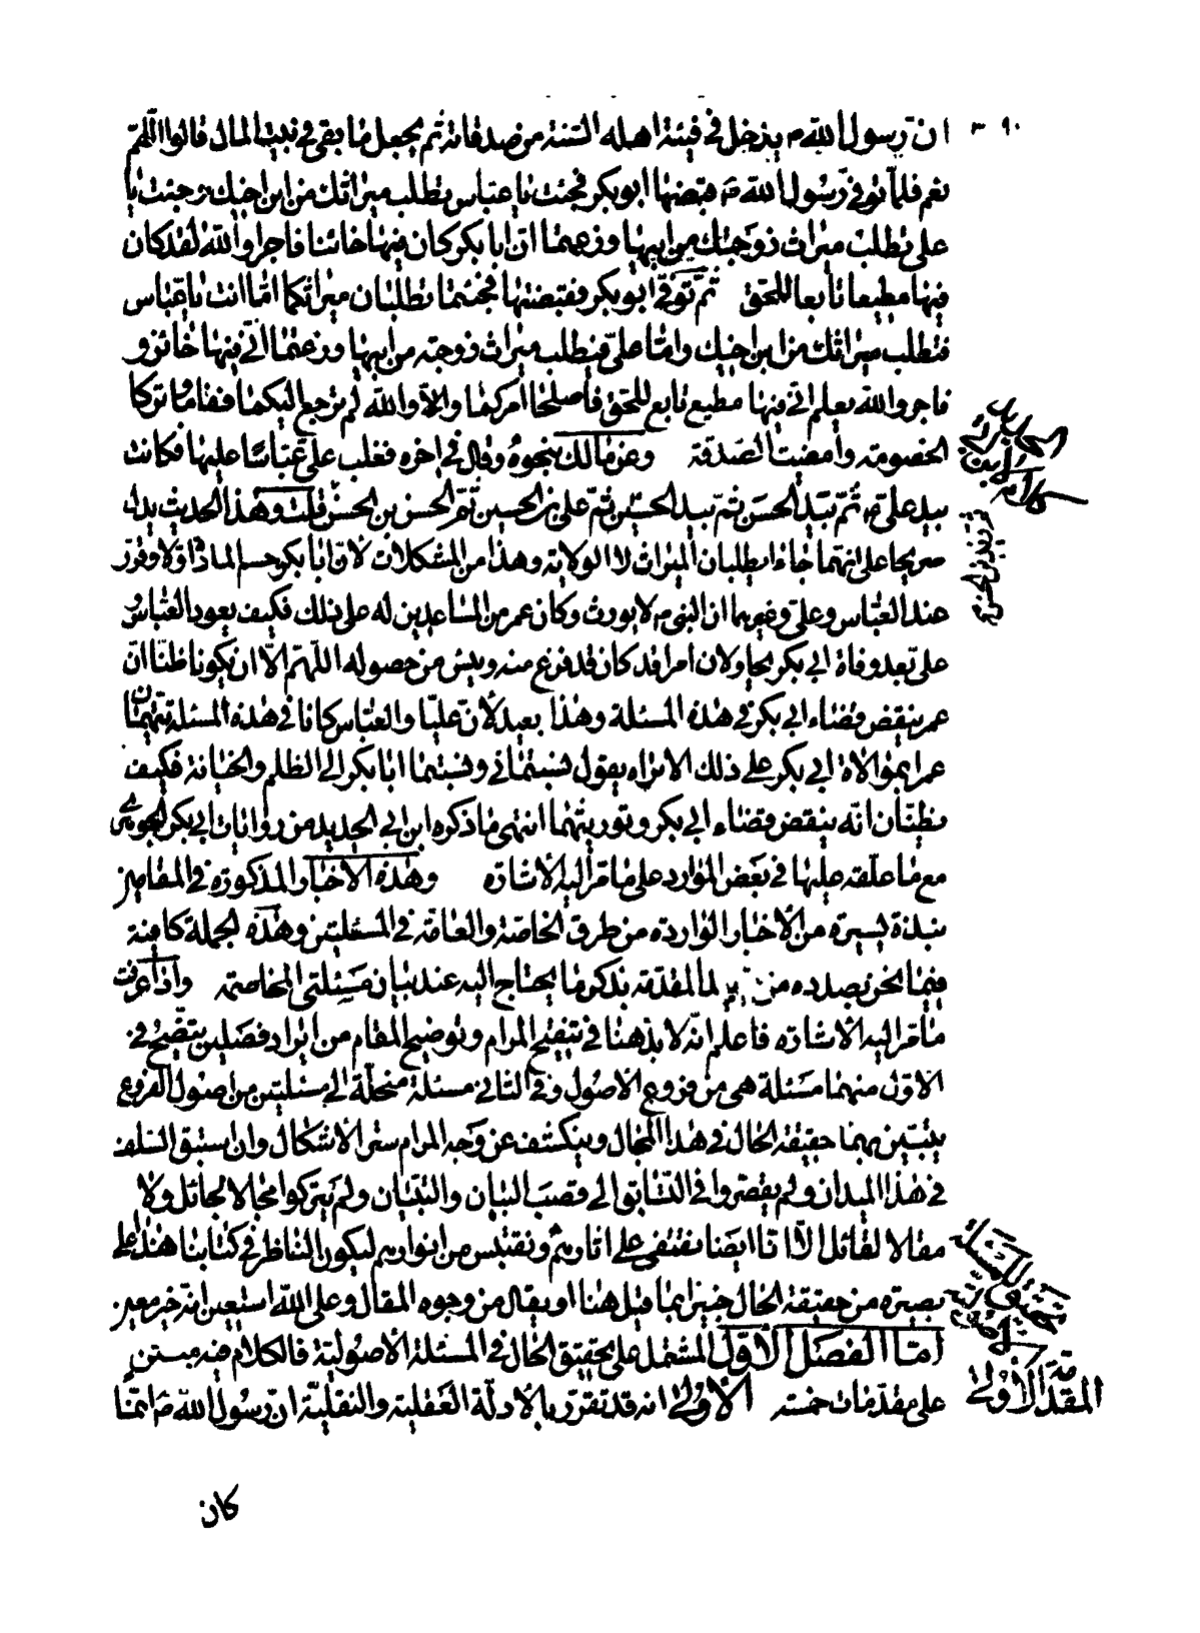 ٣٩٠
ان رسول الله ص يدخل في فيئة اهله السنة من صدقاته ثم يجعل ما بقى في بيت المال قالوا اللهم
نعم فلما توفى رسول الله ص قبضها ابو بكر فجئت يا عباس تطلب ميراثك من ابن اخيك وجئت يا
على تطلب ميراث زوجتك من ابيها وزعمتما ان ابا بكر كان فيها خائنا فاجرا والله لقد كان
فيها مطيعا تابعا للحق ثم توفى ابو بكر فقبضتها فجئتما تطلبان ميراثكما اما انت يا عباس
فتطلب ميراثك من ابن اخيك واما على فيطلب ميراث زوجته من ابيها وزعمتما انى فيها خائن و
فاجر والله يعلم انى فيها مطيع تابع للحق فاصلحا امركما والا والله لم ترجع اليكما فقاما وتركا
الخصومة وامضيت الصدقة وعن مالك بنحوه وقال في اخره فغلب على عباسا عليها فكانت
بيد على ع ثم بيد الحسن ثم بيد الحسين ثم على بن الحسين ثم الحسن بن الحسن قلت وهذا الحديث يدل
صريحا على انهما جاءا يطلبان الميراث لا الولاية وهذا من المشكلات لان ابا بكر حسم المادة اولا وقرر
عند العباس وعلى وغيرهما ان النبى ص لا يورث وكان عمر من المساعدين له على ذلك فكيف يعود العباس
على بعد وفاة ابى بكر يحاولان امرا قد كان قد فرغ منه ويئس من حصوله اللهم الا ان يكونا ظنا ان
عمر ينقض قضاء ابى بكر في هذه المسئلة وهذا بعيد لان عليا والعباس كانا في هذه المسئلة يتهمان
عمر بموالاة ابى بكر على ذلك الا تراه يقول نسبتمانى ونسبتما ابا بكر الى الظلم والخيانة فكيف
يظنان انه ينقض قضاء ابى بكر ويورثهما انتهى ما ذكره ابن ابى الحديد من روايات ابى بكر الجوهرى
مع ما علقه عليها في بعض الموارد على ما مر اليه الاشارة وهذه الاخبار المذكورة في المقامين
نبذة يسيرة من الاخبار الواردة من طرق الخاصة والعامة في المسئلتين وهذه الجملة كافية
فيما نحن بصدده من لما المقدمة بذكر ما يحتاج اليه عند بيان مسئلتى المخاصمة واذا عرفت
ما مر اليه الاشارة فاعلم انه لا بد هنا في تنقيح المرام وتوضيح المقام من ايراد فصلين يتضح في
الاول منهما مسئلة هى من فروع الاصول وفي الثانى مسئلة منحلة الى مسئلتين من اصول الفروع
يتبين بهما حقيقة الحال في هذا المجال وينكشف عن وجه المرام ستر الاشكال وان استبق السلف
في هذا الميدان ولم يقصروا في التسابق الى قصب البيان والتبيان ولم يتركوا مجالا لجائل ولا
مقالا لقائل الا انا ايضا نقتفى على اثارهم ونقتبس من انوارهم ليكون الناظر في كتابنا هذا على
بصيرة من حقيقة الحال خبيرا بما قيل هنا او يقال من وجوه المقال وعلى الله استعين انه خير معين
اما الفصل الاول المشتمل على تحقيق الحال في المسئلة الاصولية فالكلام فيه مبتن
على مقدمات خمسة الاولى انه قد تقرر بالادلة العقلية والنقلية ان رسول الله ص انما
المقدمة الاولى
كان